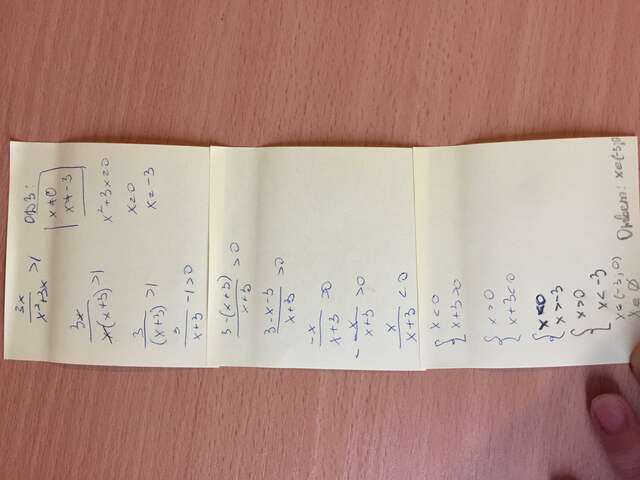 3x/(x²+3x) >1
ОДЗ:
x≠0
x≠-3
x²+3x=0
x=0
x=-3
3x/(x(x+3)) >1
3/(x+3) >1
3/(x+3) -1>0
(3-(x+3))/(x+3) >0
(3-x-3)/(x+3) >0
-x/(x+3) >0
- x/(x+3) >0
x/(x+3) <0
{ x<0
x+3>0
{ x>0
x+3<0
{ x<0
x>-3
{ x>0
x<-3
x∈(-3,0)
x∈∅
Ответ: x∈(-3,0)